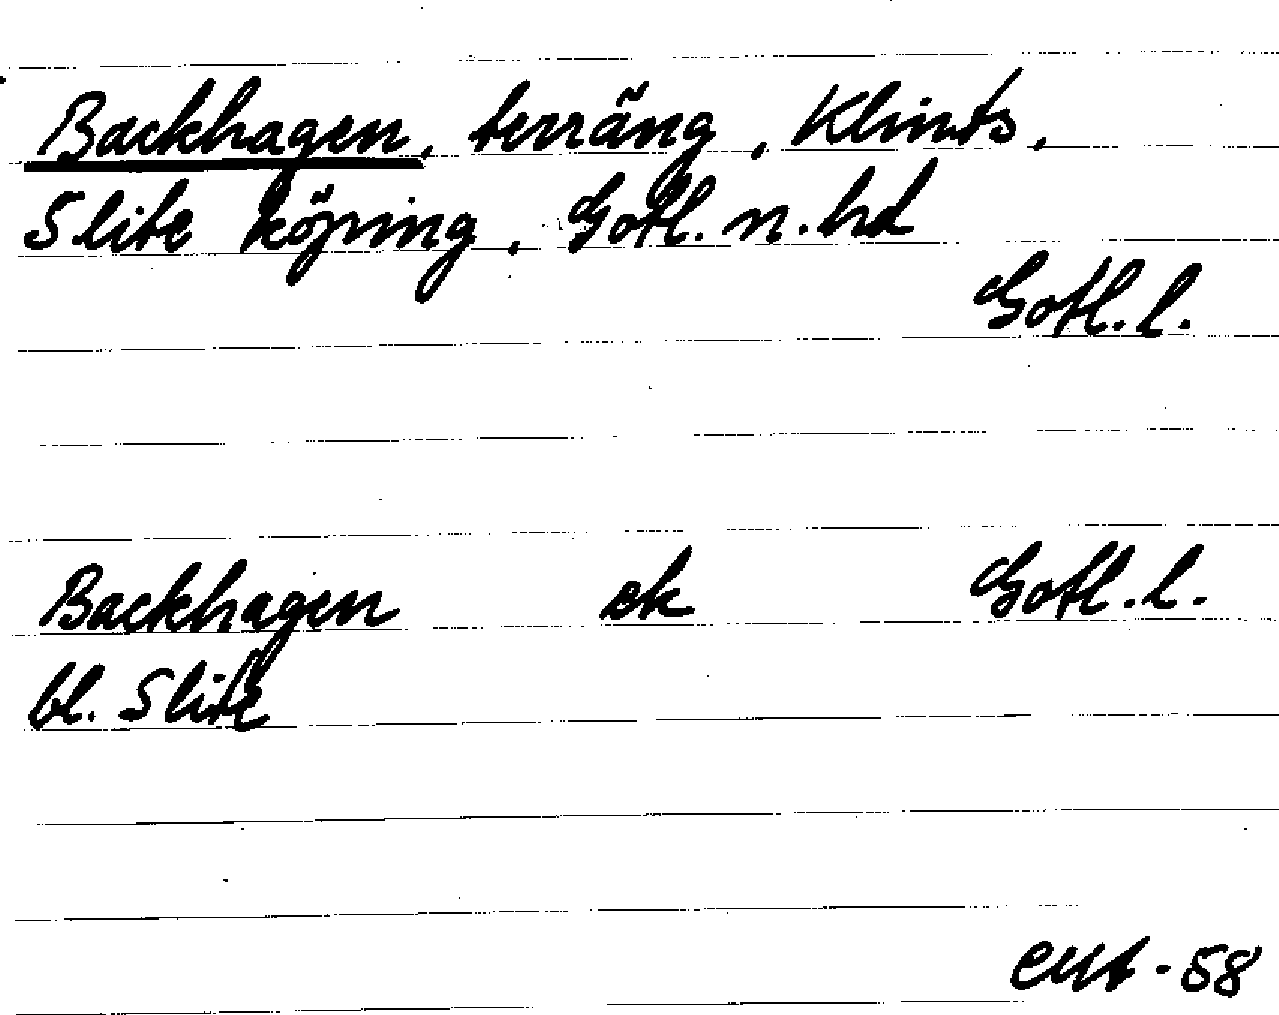 Backhagen, terräng, Klints,
Slite köping, Gotl. n. hd
Gotl. l.
Backhagen ek Gotl. l.
bl. Slite
-58